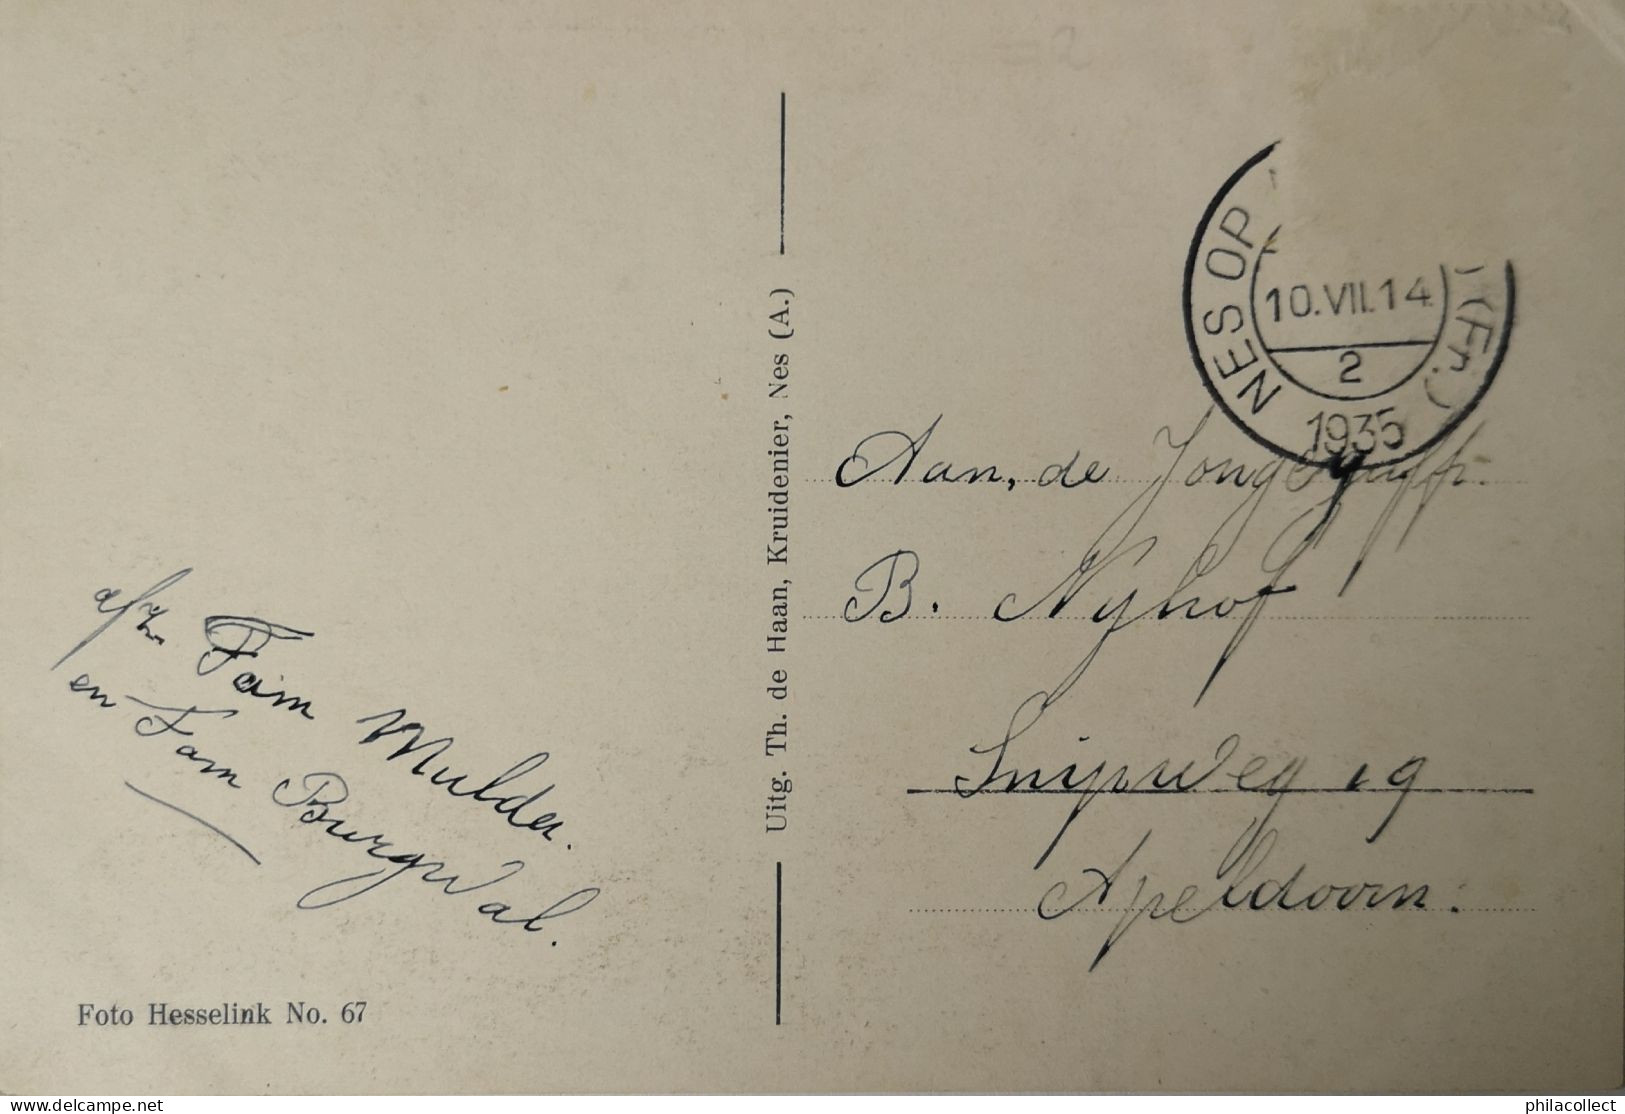 afz. Fam Mulder.
en Fam Burgwal.
Foto Hesselink No. 67
Uitg. Th. de Haan, Kruidenier, Nes (A.)
NES OP (Fr.)
10.VII.14
2
1935
Aan, de Jongejuffr.
B. Nyhof
Snipweg 19
Apeldoorn.
philacollect